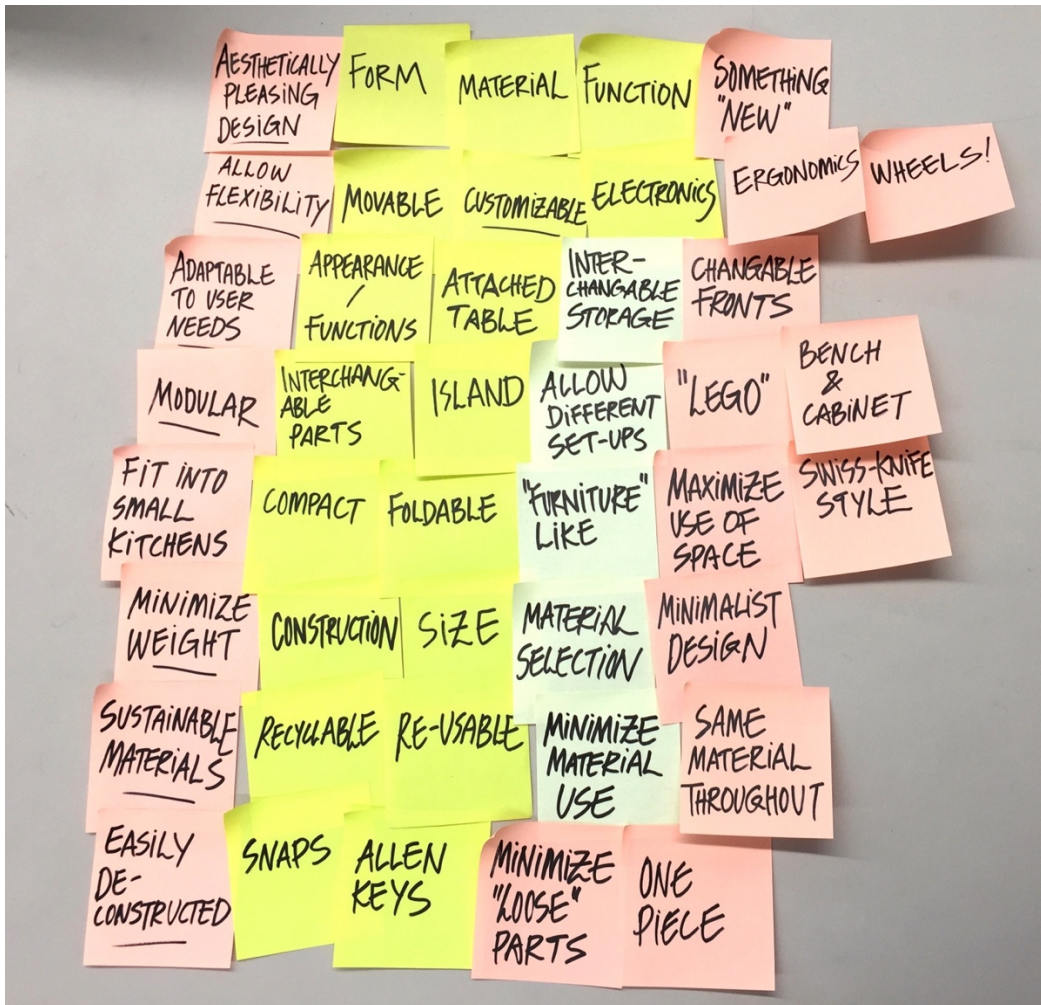 AESTHETICALLY
PLEASING
DESIGN
FORM
MATERIAL
FUNCTION
SOMETHING
"NEW"
ALLOW
FLEXIBILITY
MOVABLE
CUSTOMIZABLE
ELECTRONICS
ERGONOMICS
WHEELS!
ADAPTABLE
TO USER
NEEDS
APPEARANCE
/
FUNCTIONS
ATTACHED
TABLE
INTER-
CHANGABLE
STORAGE
CHANGABLE
FRONTS
MODULAR
INTERCHANG-
ABLE
PARTS
ISLAND
ALLOW
DIFFERENT
SET-UPS
"LEGO"
BENCH
&
CABINET
FIT INTO
SMALL
KITCHENS
COMPACT
FOLDABLE
"FURNITURE"
LIKE
MAXIMIZE
USE OF
SPACE
SWISS-KNIFE
STYLE
MINIMIZE
WEIGHT
CONSTRUCTION
SIZE
MATERIAL
SELECTION
MINIMALIST
DESIGN
SUSTAINABLE
MATERIALS
RECYCLABLE
RE-USABLE
MINIMIZE
MATERIAL
USE
SAME
MATERIAL
THROUGHOUT
EASILY
DE-
CONSTRUCTED
SNAPS
ALLEN
KEYS
MINIMIZE
"LOOSE"
PARTS
ONE
PIECE